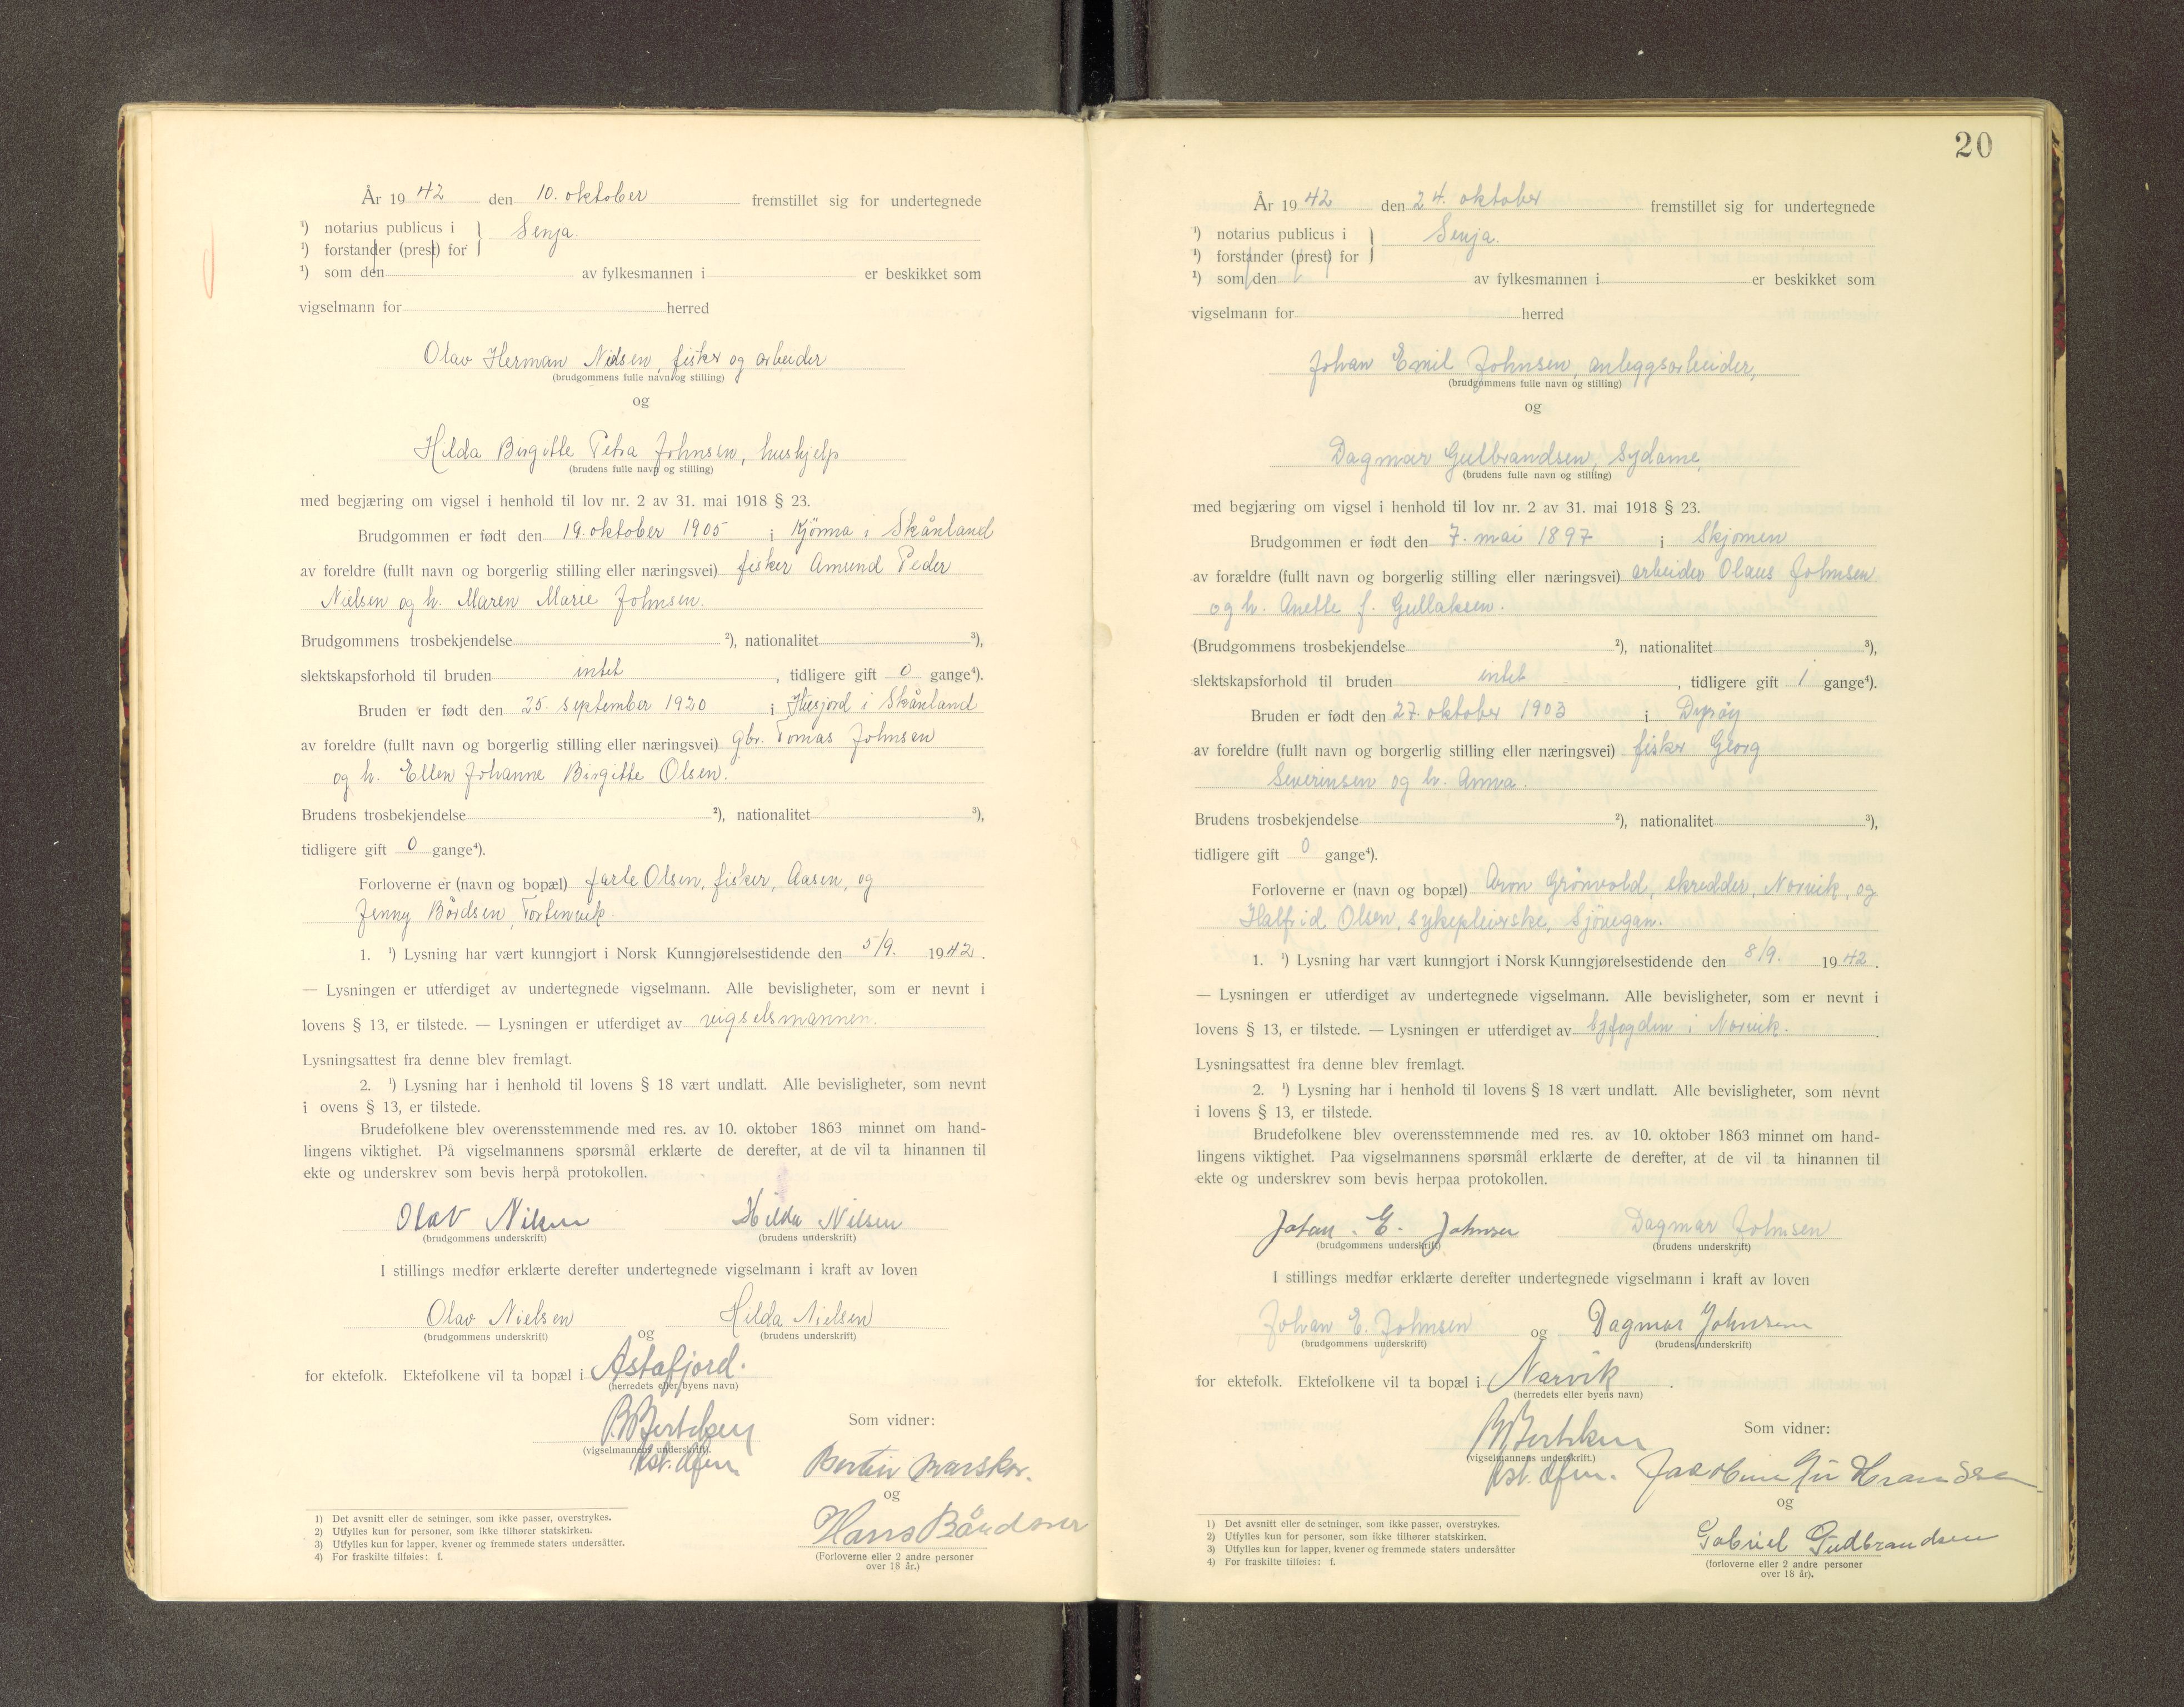 År 1942 den 10. oktober fremstillet sig for undertegnede
¹) notarius publicus i } Senja.
¹) forstander (prest) for
¹) som den av fylkesmannen i er beskikket som
vigselmann for herred
Olav Herman Nielsen, fisker og arbeider
(brudgommens fulle navn og stilling)
og
Hilda Birgitte Petra Johnsen, hushjelp
(brudens fulle navn og stilling)
med begjæring om vigsel i henhold til lov nr. 2 av 31. mai 1918 § 23.
Brudgommen er født den 19. oktober 1905 i i Skånland
av foreldre (fullt navn og borgerlig stilling eller næringsvei) fisker Amund Peder
Nielsen og h. Maren Marie Johnsen.
Brudgommens trosbekjendelse ²), nationalitet ³),
slektskapsforhold til bruden intet, tidligere gift 0 gange⁴).
Bruden er født den 25. september 1920 i i Skånland
av foreldre (fullt navn og borgerlig stilling eller næringsvei) gbr. Tomas Johnsen
og h. Ellen Johanne Birgitte Olsen.
Brudens trosbekjendelse ²), nationalitet ³),
tidligere gift 0 gange⁴).
Forloverne er (navn og bopæl) Jarle Olsen, fisker, Aasen, og
Jenny Bårdsen,
1. ¹) Lysning har vært kunngjort i Norsk Kunngjørelsestidende den 5/9. 1942.
— Lysningen er utferdiget av undertegnede vigselmann. Alle bevisligheter, som er nevnt i
lovens § 13, er tilstede. — Lysningen er utferdiget av vigselsmannen.
Lysningsattest fra denne blev fremlagt.
2. ¹) Lysning har i henhold til lovens § 18 vært undlatt. Alle bevisligheter, som nevnt
i ovens § 13, er tilstede.
Brudefolkene blev overensstemmende med res. av 10. oktober 1863 minnet om hand-
lingens viktighet. På vigselmannens spørsmål erklærte de derefter, at de vil ta hinannen til
ekte og underskrev som bevis herpå protokollen.
Olav Nilsen Hilda Nilsen
(brudgommens underskrift) (brudens underskrift)
I stillings medfør erklærte derefter undertegnede vigselmann i kraft av loven
Olav Nielsen og Hilda Nielsen
(brudgommens underskrift) (brudens underskrift)
for ektefolk. Ektefolkene vil ta bopæl i Astafjord.
(herredets eller byens navn)
Som vidner:
(vigselmannens underskrift).
og
Hans Bårdsen
(Forloverne eller 2 andre personer
over 18 år.)
1) Det avsnitt eller de setninger, som ikke passer, overstrykes.
2) Utfylles kun for personer, som ikke tilhører statskirken.
3) Utfylles kun for lapper, kvener og fremmede staters undersåtter.
4) For fraskilte tilføies: f.
20
År 1942 den 24. oktober fremstillet sig for undertegnede
¹) notarius publicus i } Senja.
¹) forstander (prest) for
¹) som den av fylkesmannen i er beskikket som
vigselmann for herred
Johan Emil Johnsen, anleggsarbeider,
(brudgommens fulle navn og stilling)
og
Dagmar Gulbrandsen, sydame,
(brudens fulle navn og stilling)
med begjæring om vigsel i henhold til lov nr. 2 av 31. mai 1918 § 23.
Brudgommen er født den 7. mai 1897 i Skjomen
av forældre (fullt navn og borgerlig stilling eller næringsvei) arbeider Olaus Johnsen
og h. Anette f. Gullaksen.
(Brudgommens trosbekjendelse ²), nationalitet ³),
slektskapsforhold til bruden intet, tidligere gift 1 gange⁴).
Bruden er født den 27. oktober 1903 i Dyrøy
av foreldre (fullt navn og borgerlig stilling eller næringsvei) fisker Georg
Severinsen og h. Anna.
Brudens trosbekjendelse ²), nationalitet ³),
tidligere gift 0 gange⁴).
Forloverne er (navn og bopæl) Aron Grönvold, skredder, Narvik, og
Halfrid Olsen, sykepleierske, Sjövegan.
1. ¹) Lysning har vært kunngjort i Norsk Kunngjørelsestidende den 8/9. 1942.
— Lysningen er utferdiget av undertegnede vigselmann. Alle bevisligheter, som er nevnt i
lovens § 13, er tilstede. — Lysningen er utferdiget av byfogden i Narvik.
Lysningsattest fra denne blev fremlagt.
2. ¹) Lysning har i henhold til lovens § 18 vært undlatt. Alle bevisligheter, som nevnt
i lovens § 13, er tilstede.
Brudefolkene blev overensstemmende med res. av 10. oktober 1863 minnet om hand-
lingens viktighet. Paa vigselmannens spørsmål erklærte de derefter, at de vil ta hinannen til
ekte og underskrev som bevis herpaa protokollen.
Johan. E. Johnsen Dagmar Johnsen
(brudgommens underskrift) (brudens underskrift)
I stillings medfør erklærte derefter undertegnede vigselmann i kraft av loven
Johan E. Johnsen og Dagmar Johnsen
(brudgommens underskrift) (brudens underskrift)
for ektefolk. Ektefolkene vil ta bopæl i Narvik.
(herredets eller byens navn)
Som vidner:
(vigselmannens underskrift.)
og
Gabriel Gudbrandsen
(forloverne eller 2 andre personer
over 18 år).
1) Det avsnitt eller de setninger, som ikke passer, overstrykes.
2) Utfylles kun for personer, som ikke tilhører statskirken.
3) Utfylles kun for lapper, kvener og fremmede staters undersåtter
4) For fraskilte tilføies: f.